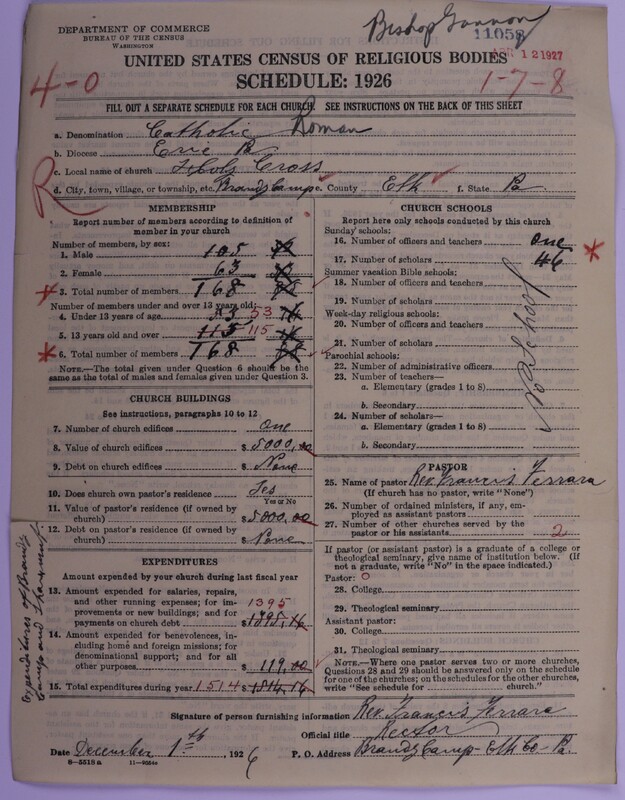 DEPARTMENT OF COMMERCE
BUREAU OF THE CENSUS
WASHINGTON
Bishop Gannon
11058
APR 12 1927
UNITED STATES CENSUS OF RELIGIOUS BODIES
4-0
SCHEDULE: 1926
1-7-8
FILL OUT A SEPARATE SCHEDULE FOR EACH CHURCH. SEE INSTRUCTIONS ON THE BACK OF THIS SHEET
a. Denomination Catholic Roman
b. Diocese Erie Pa
c. Local name of church Cross
d. City, town, village, or township, etc. Brandy Camp e. County Elk f. State Pa
R
MEMBERSHIP
Report number of members according to definition of
member in your church
Number of members, by sex:
1. Male 105
2. Female 63
3. Total number of members 168
Number of members under and over 13 years old:
4. Under 13 years of age 53 53
5. 13 years old and over 115 115
6. Total number of members 168
NOTE.—The total given under Question 6 should be
same as the total of males and females given under Question 3.
CHURCH BUILDINGS
See instructions, paragraphs 10 to 12
7. Number of church edifices One
8. Value of church edifices $ 5000,00
9. Debt on church edifices $ None
10. Does church own pastor's residence Yes
Yes or No
11. Value of pastor's residence (if owned by
church) $ 5000,00
12. Debt on pastor's residence (if owned by
church) $ None
EXPENDITURES
Amount expended by your church during last fiscal year
13. Amount expended for salaries, repairs,
and other running expenses; for im-
provements or new buildings; and for
payments on church debt 1395 $ 1395,16
14. Amount expended for benevolences, in-
cluding home and foreign missions; for
denominational support; and for all
other purposes $ 119,00
15. Total expenditures during year 1514 $ 1514,16
Expenditures of Brandy
Camp and
CHURCH SCHOOLS
Report here only schools conducted by this church
Sunday schools:
16. Number of officers and teachers One
17. Number of scholars 46
Summer vacation Bible schools:
18. Number of officers and teachers
19. Number of scholars
Week-day religious schools:
20. Number of officers and teachers
21. Number of scholars
Parochial schools:
22. Number of administrative officers
23. Number of teachers—
a. Elementary (grades 1 to 8)
b. Secondary
24. Number of scholars—
a. Elementary (grades 1 to 8)
b. Secondary
No Par School
PASTOR
25. Name of pastor Rev. Francis Ferrara
(If church has no pastor, write "None")
26. Number of ordained ministers, if any, em-
ployed as assistant pastors
27. Number of other churches served by the
pastor or his assistants 2
If pastor (or assistant pastor) is a graduate of a college or
theological seminary, give name of institution below. (If
not a graduate, write "No" in the space indicated.)
Pastor: 0
28. College
29. Theological seminary
Assistant pastor:
30. College
31. Theological seminary
NOTE.—Where one pastor serves two or more churches,
Questions 28 and 29 should be answered only on the schedule
for one of the churches; on the schedules for the other churches,
write "See schedule for church."
Signature of person furnishing information Rev. Francis Ferrara
Official title Rector
Date December 1st, 1926 P. O. Address Brandy Camp - Elk Co - Pa
8-5518a 11-9584a